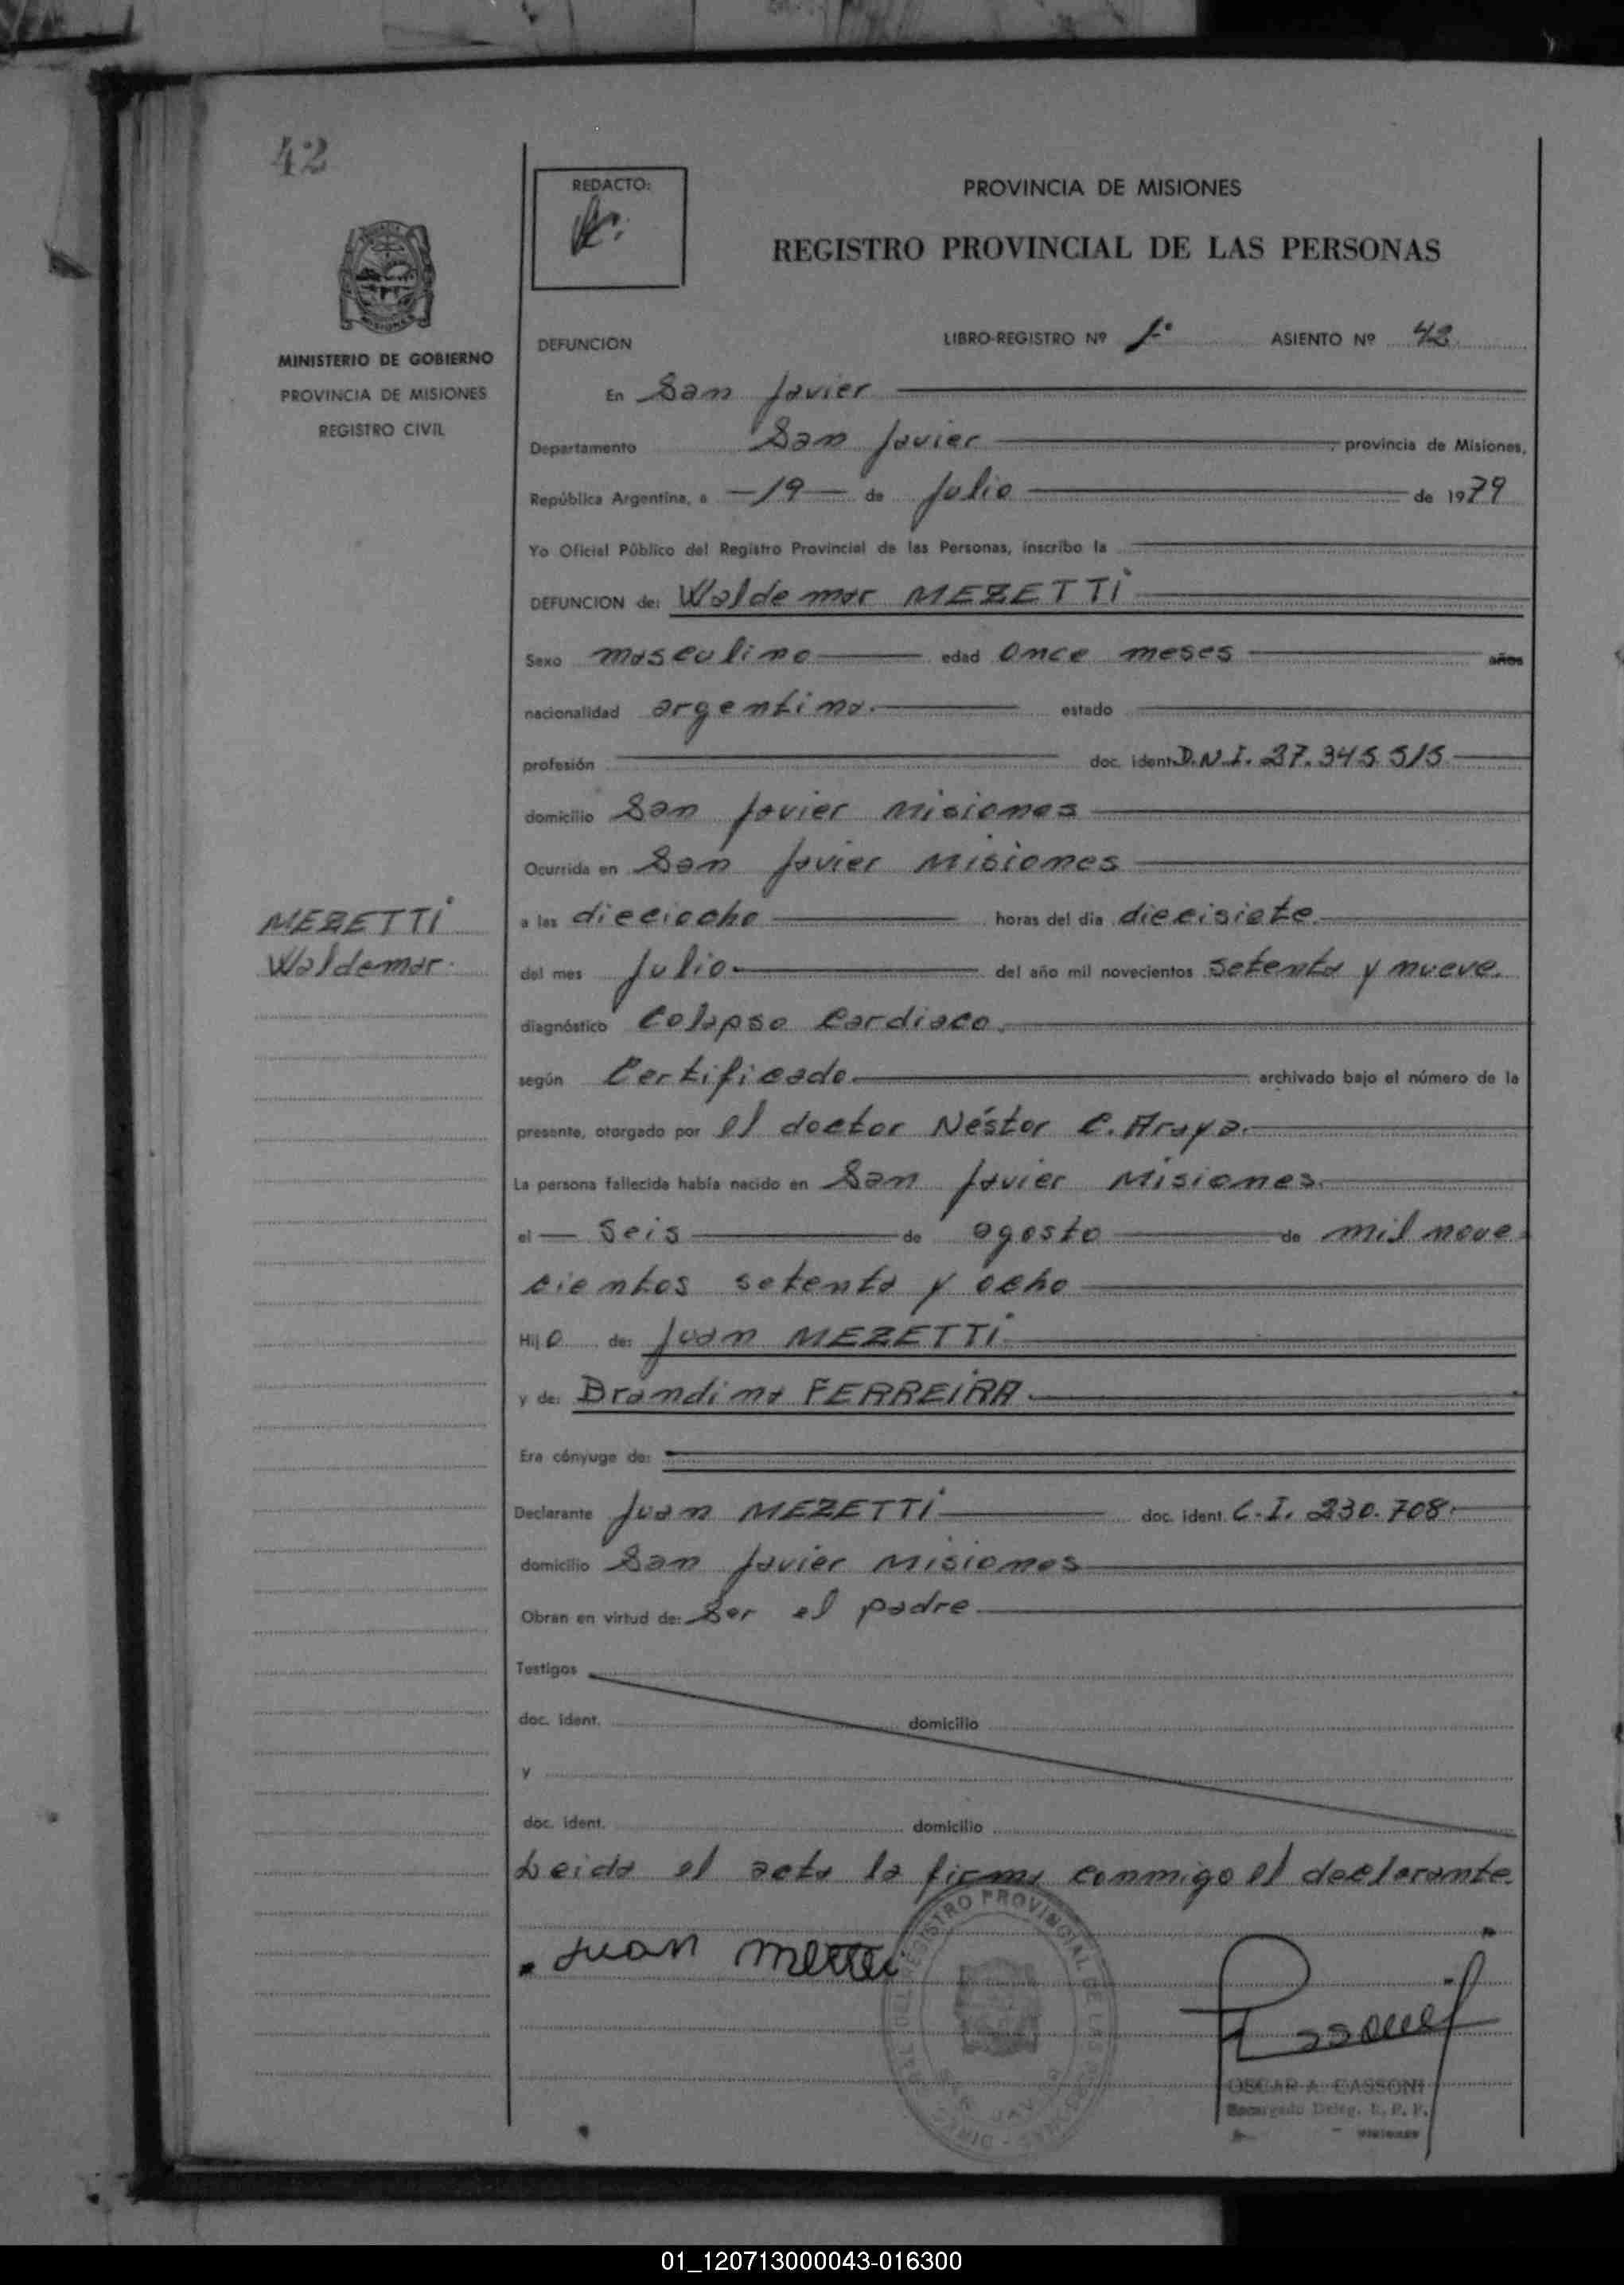 42
REDACTO:
PROVINCIA DE MISIONES
REGISTRO PROVINCIAL DE LAS PERSONAS
MISIONES
MINISTERIO DE GOBIERNO
PROVINCIA DE MISIONES
REGISTRO CIVIL
DEFUNCION LIBRO-REGISTRO Nº 1º ASIENTO Nº 42
En San Javier
Departamento San Javier, provincia de Misiones,
República Argentina, a 19 de Julio de 1979
Yo Oficial Público del Registro Provincial de las Personas, inscribo la
DEFUNCION de: Waldemar MEZETTI
Sexo masculino edad Once meses años
nacionalidad argentina. estado
profesión doc. ident. D.N.I. 27.345.515
domicilio San Javier Misiones
Ocurrida en San Javier Misiones
a las dieciocho horas del día diecisiete.
MEZETTI
Waldemar.
del mes Julio. del año mil novecientos setenta y nueve.
diagnóstico Colapso Cardiaco.
según Certificado. archivado bajo el número de la
presente, otorgado por el doctor Néstor C. Araya.
La persona fallecida había nacido en San Javier Misiones.
el seis de agosto de mil nove
cientos setenta y ocho
Hijo de: Juan MEZETTI
y de: Brandina FERREIRA
Era cónyuge de:
Declarante Juan MEZETTI doc. ident. C.I. 230.708
domicilio San Javier Misiones
Obran en virtud de: Ser el padre
Testigos
doc. ident. domicilio
y
doc. ident. domicilio
Leida el acta la firma conmigo el declarante.
Juan
OSCAR A. CASSONI
Encargado Deleg. R. P. P.
MISIONES
01_120713000043-016300